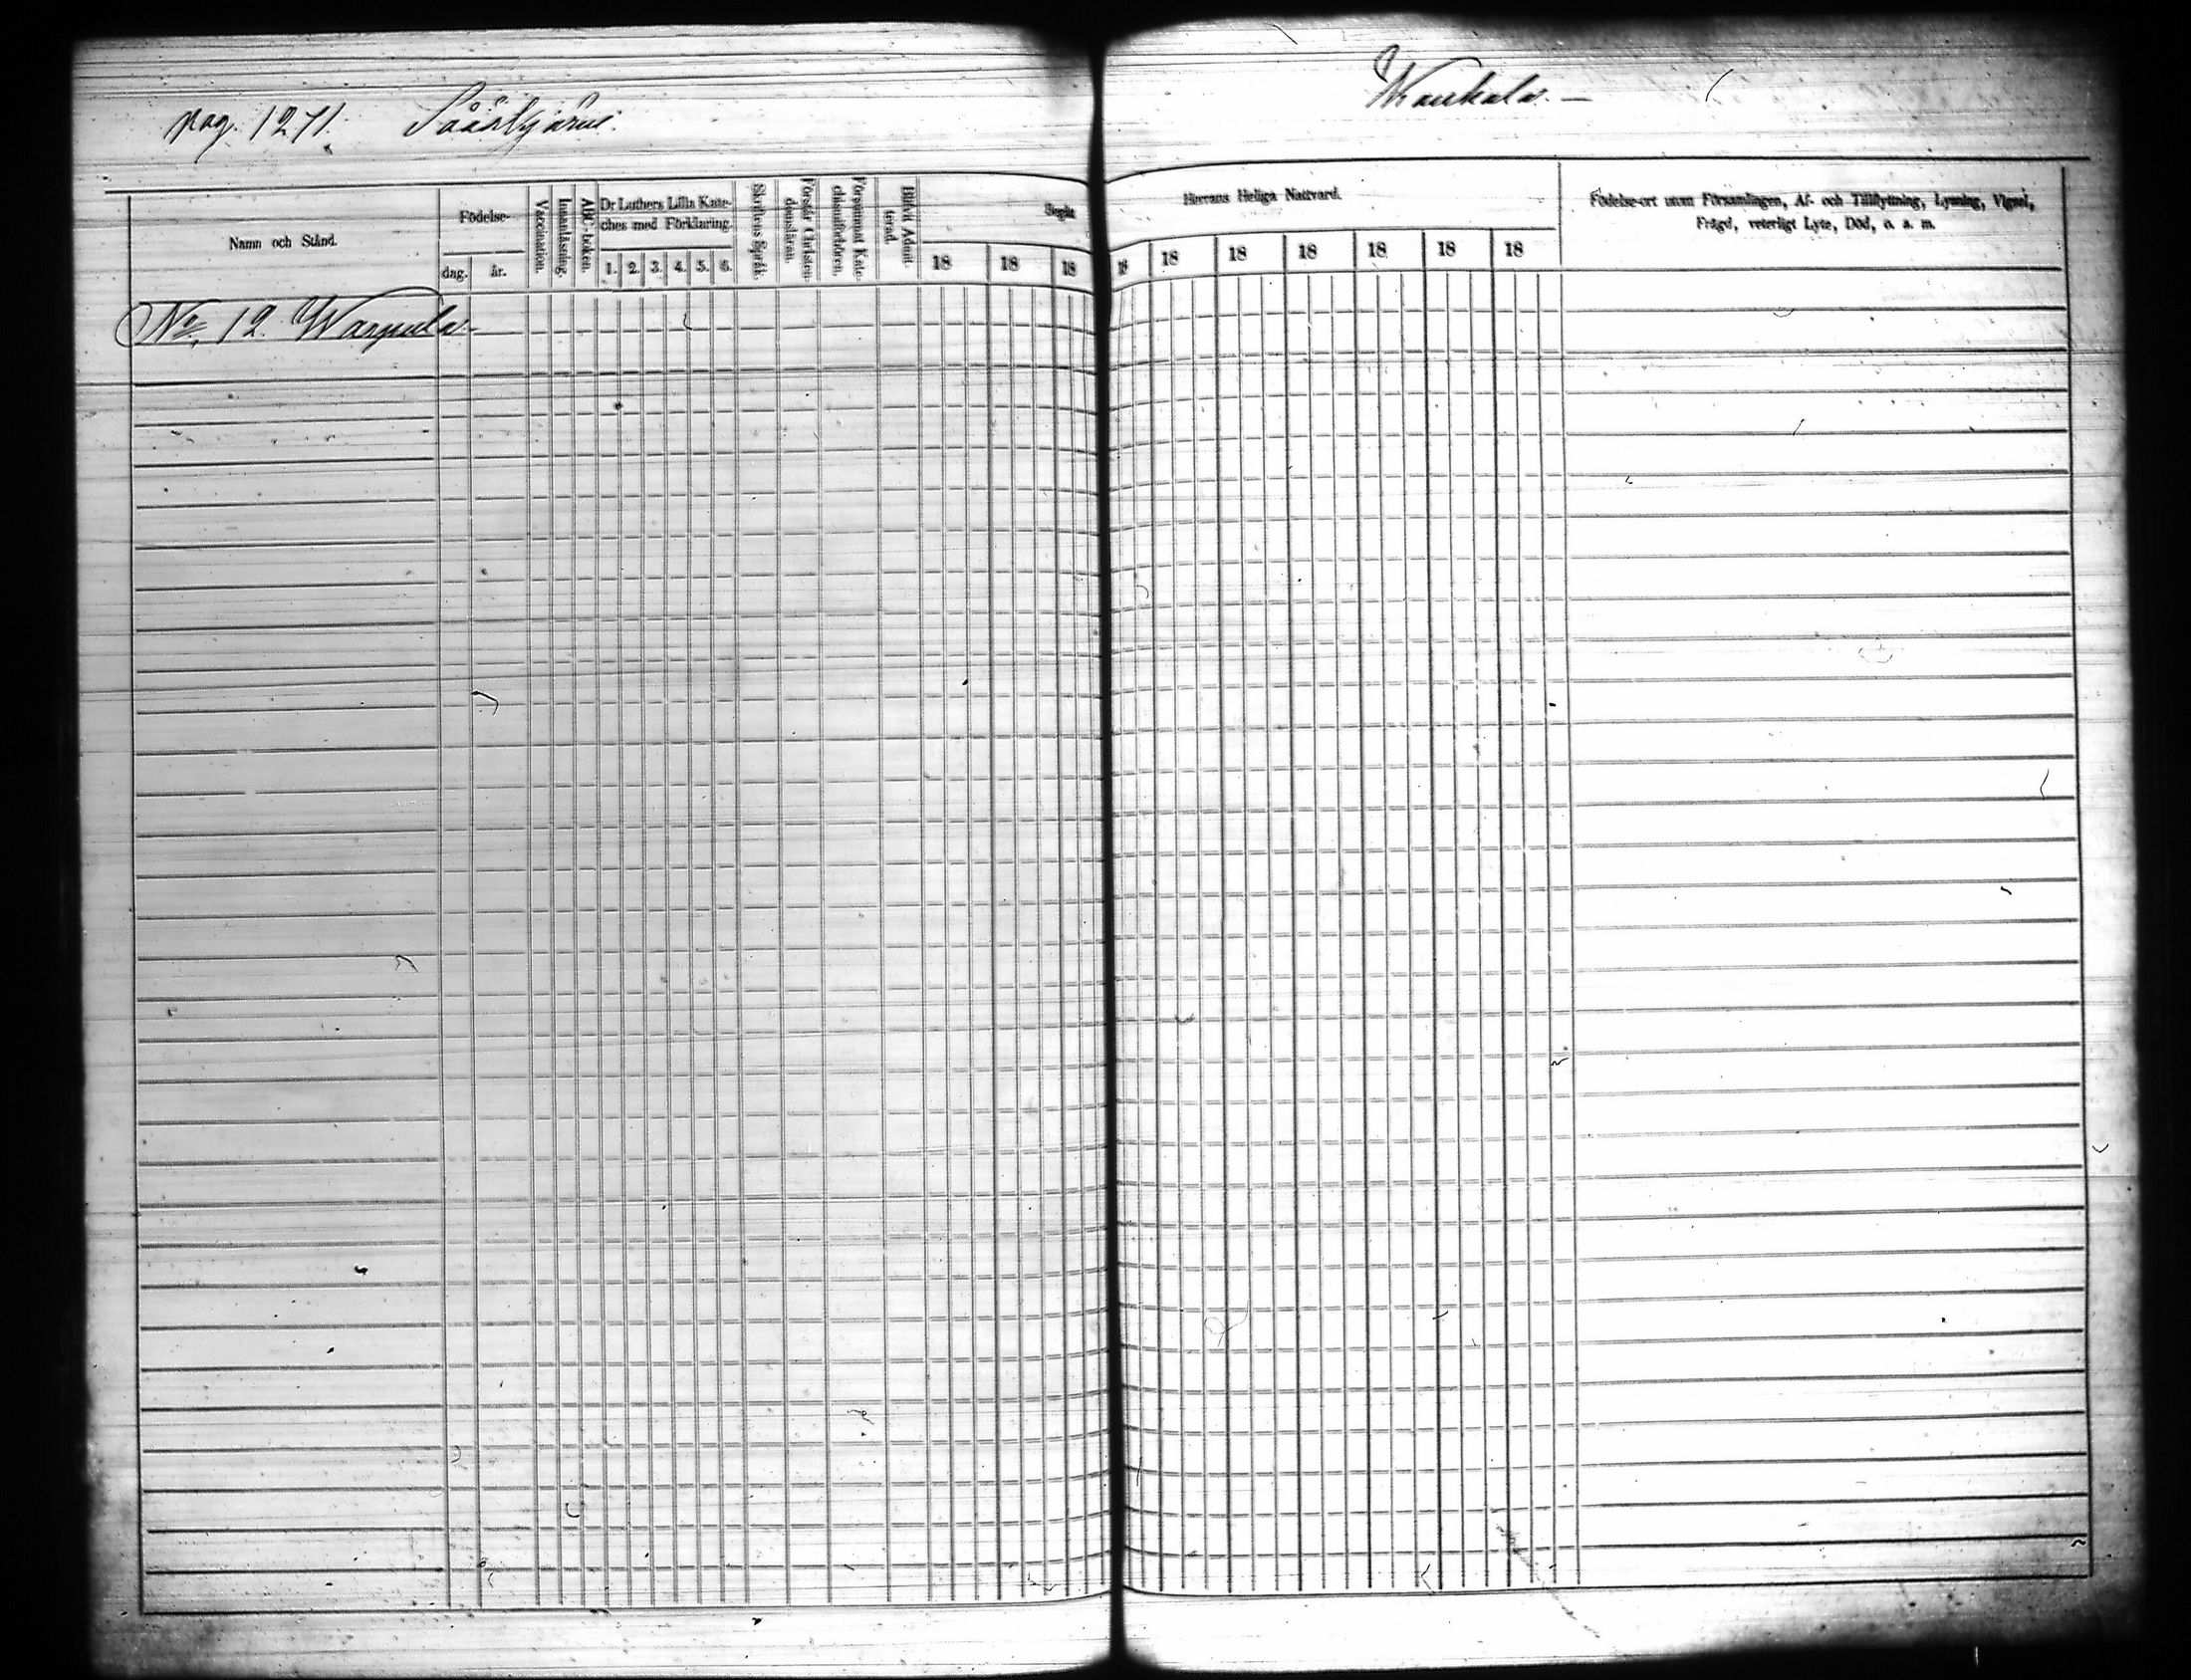 pag. 1271. Sääskjärvi.
Kaukala. —
Namn och Stånd.
Födelse-
dag. år.
Vaccination.
Innanläsning.
ABC-boken.
Dr Luthers Lilla Kate-
ches med Förklaring.
1. 2. 3. 4. 5. 6.
Skriftens Språk.
Förstår Christen-
domsläran.
Försummat Kate-
chismiförhören.
Blifvit Admit-
terad.
Begått
18 18 18
Herrans Heliga Nattvard.
18 18 18 18 18 18 18
Födelse-ort utom Församlingen, Af- och Tillflyttning, Lysning, Vigsel,
Frägd, veterligt Lyte, Död, o. a. m.
No. 12. Warpula